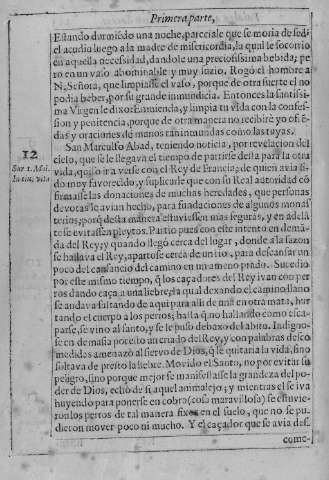 Primera parte,
Estando durmiédo una noche, pareciale que se moria de sed,
el acudia luego a la madre de misericordia, la qual le socorrio
en aquella necessidad, dandole una preciosissima bebida; pe
ro en un vaso abominable y muy suzio. Rogó el hombre a
N. Señora, que limpiasse el vaso, porque de otra suerte el no
podia beber, por su grande inmundicia. Entonces la santissi
ma Virgen le dixo: Enmienda, y limpia tu vida con la confes-
sion y penitencia, porque de otra manera no recibiré yo ofré
das y oraciones de manos tan inmundas como las tuyas.
San Marculfo Abad, teniendo noticia, por revelacion del
12
cielo, que se le llegava el tiempo de partirse desta para la otra
Sur 1. Mai.
vida, quiso ir a verse con el Rey de Francia; de quien avia si-
in eius vita
do muy favorecido, y suplicarle que con su Real autoridad có
firmasse las donaciones de muchas heredades, que personas
devotas le avian hecho, para fundaciones de algunos monas
terios; porq desta manera estuviessen mas seguras, y en adelá
te se evitassen pleytos. Partio pues con este intento en demá-
da del Rey; y quando llegó cerca del lugar, donde a la sazon
se hallava el Rey, apartose cerca de un rio, para descansar un
poco del cansancio del camino en un ameno prado. Sucedio
por este mismo tiempo, q los caçadores del Rey ivan con per
ros dando caça a una liebre, la qual dexando el camino llano
se andava saltando de aqui para alli de una en otra mata, hur
tando el cuerpo a los perros; hasta q no hallando como esca-
parse, se vino al santo, y se le puso debaxo del abito. Indigno-
se en demasia por esto un criado del Rey, y con palabras desco
medidas amenazó al siervo de Dios, q le quitaria la vida, sino
soltava de presto la liebre. Movido el Santo, no por evitar su
peligro, sino porque mejor se manifestasse la grandeza del po-
der de Dios, echó de si aquel animalejo; y mientras el se iva
huyendo para ponerse en cobro (cosa maravillosa) se estuvie-
ron los perros de tal manera fixos en el suelo, que no se pu-
dieron mover poco ni mucho. Y el caçador que se avia des-
come-